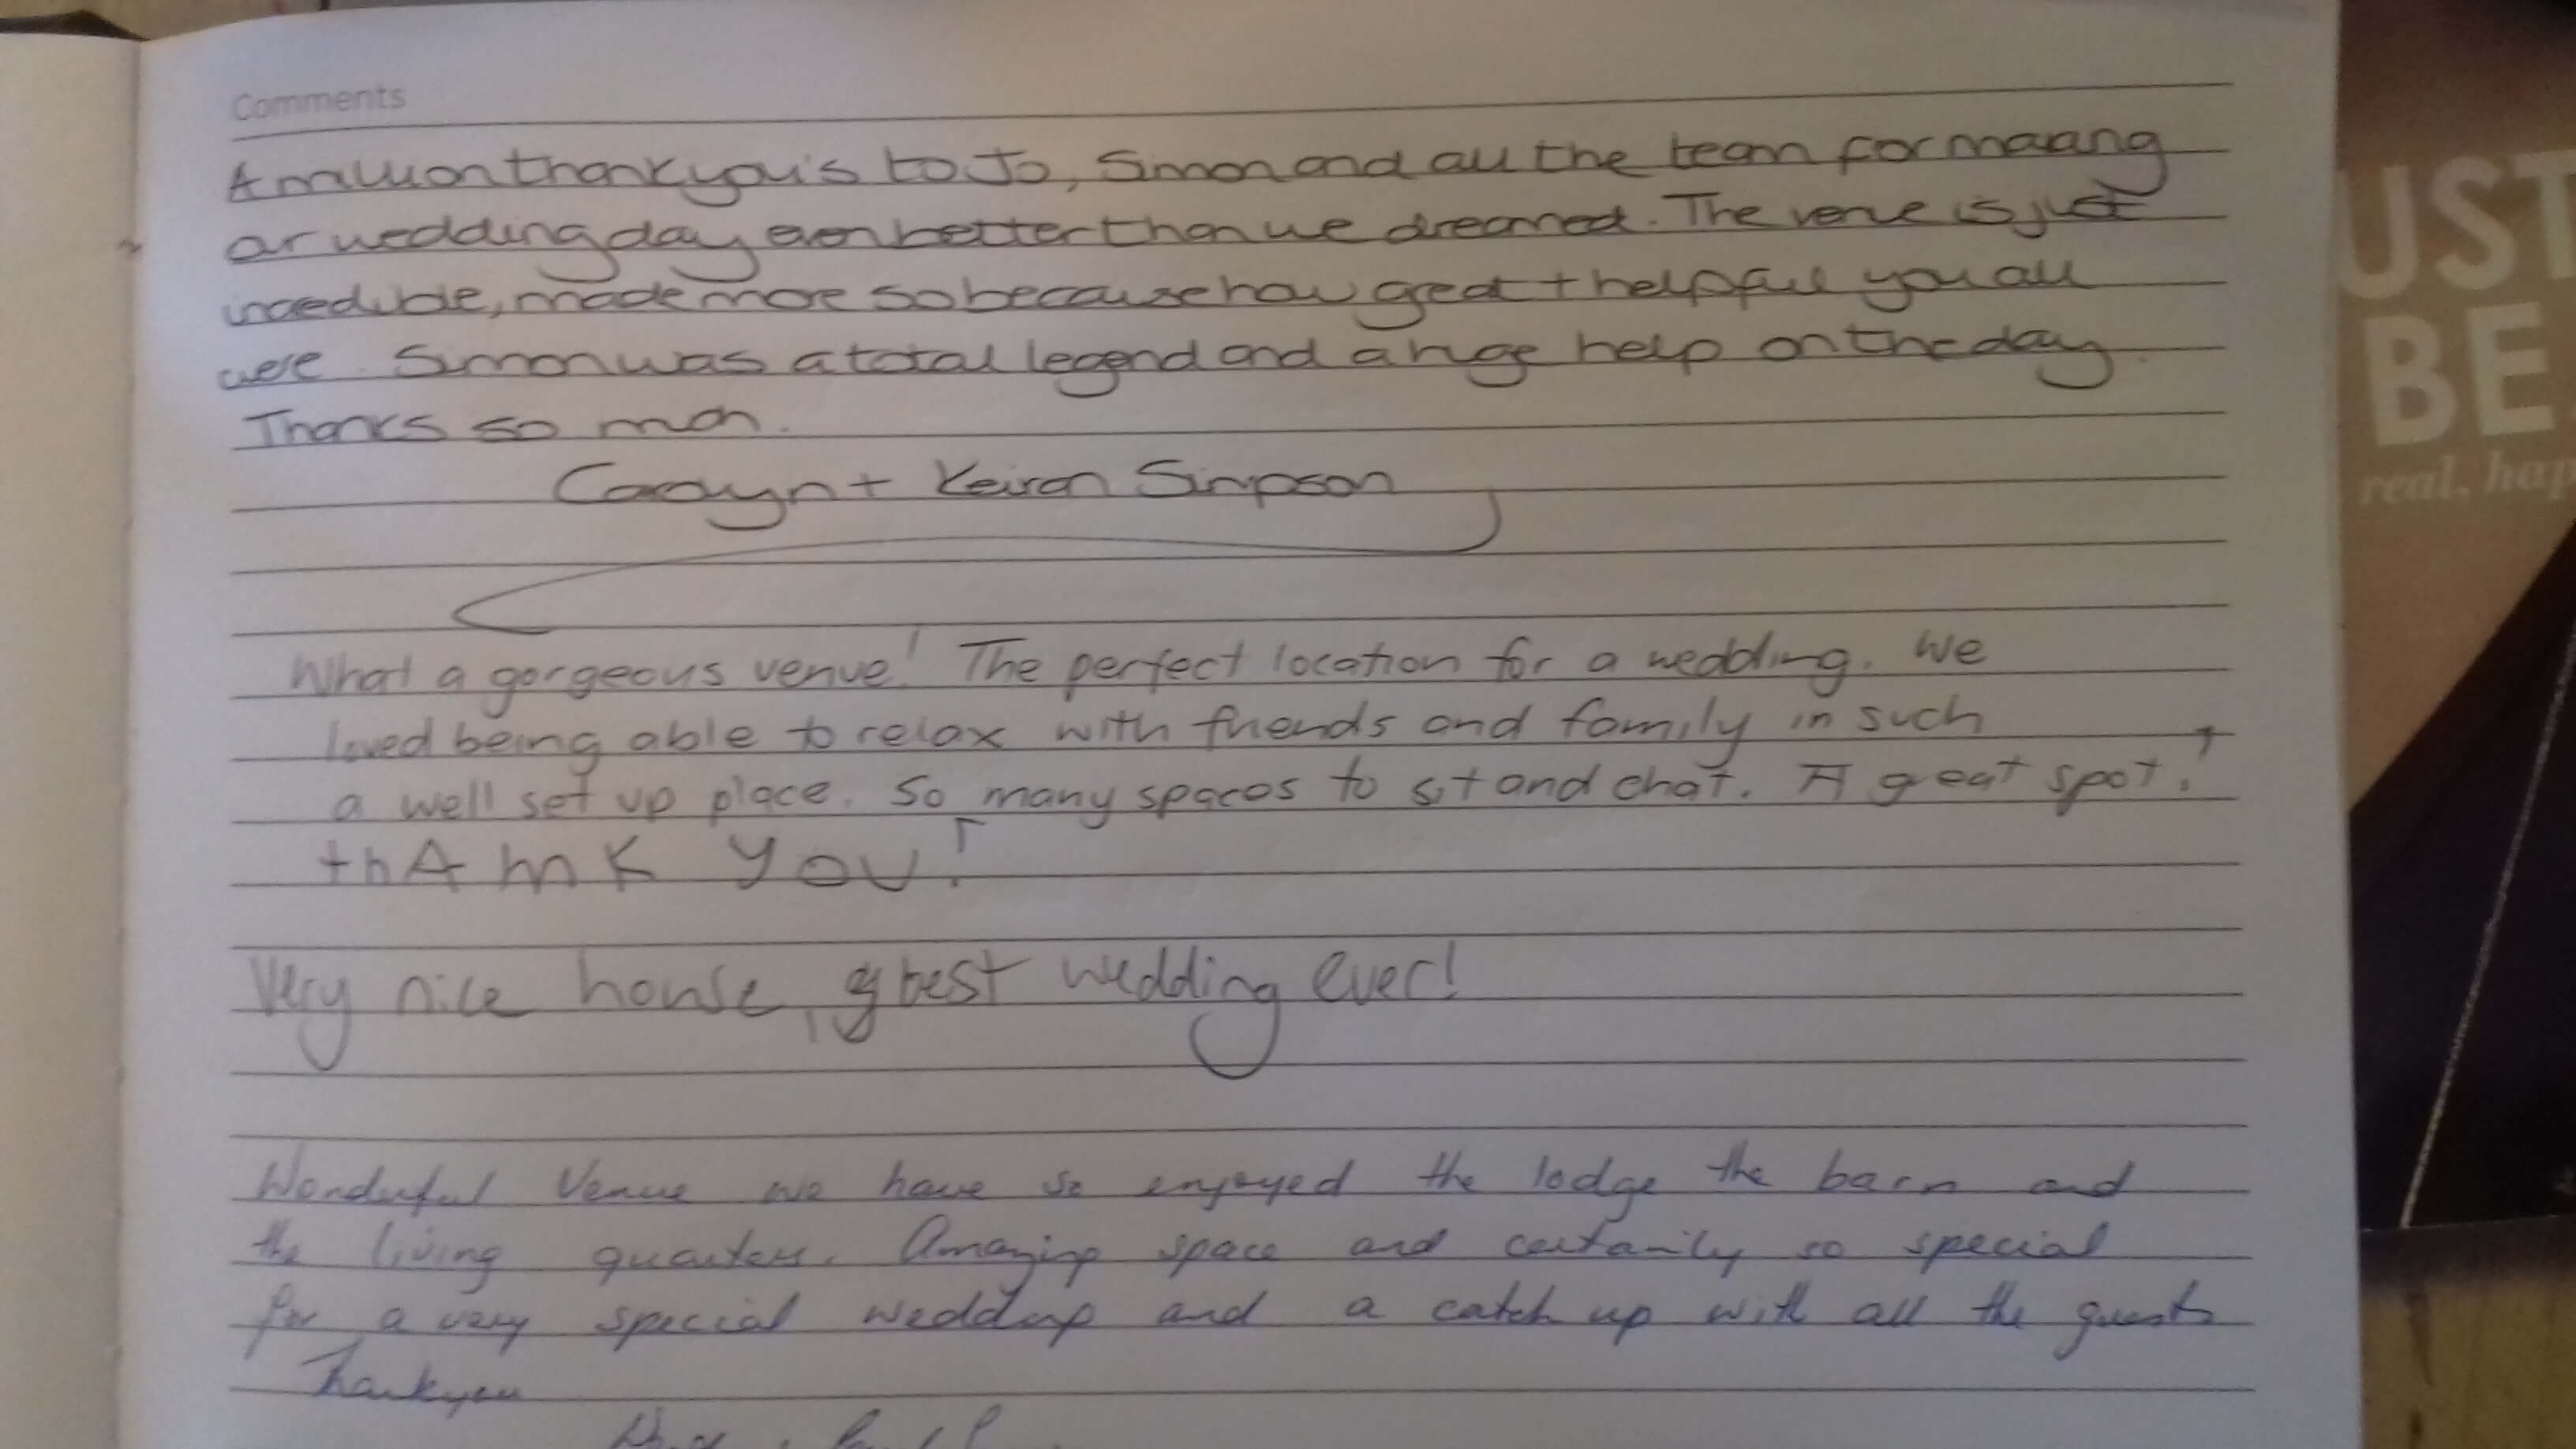 Comments
A million thank you's to Jo, Simon and all the team for making
our wedding day even better than we dreamed. The venue is just
incredible, made more so because how great + helpful you all
were. Simon was a total legend and a huge help on the day.
Thanks so much.
Carolyn + Keiran Simpson
What a gorgeous venue! The perfect location for a wedding. We
loved being able to relax with friends and family in such
a well set up place. So many spaces to sit and chat. A great spot!
thAmK YOU!
Very nice house, best wedding ever!
Wonderful Venue we have so enjoyed the lodge the barn and
the living quarters. Amazing space and certainly so special
for a very special wedding and a catch up with all the guests
Thankyou
UST
BE
real, hap